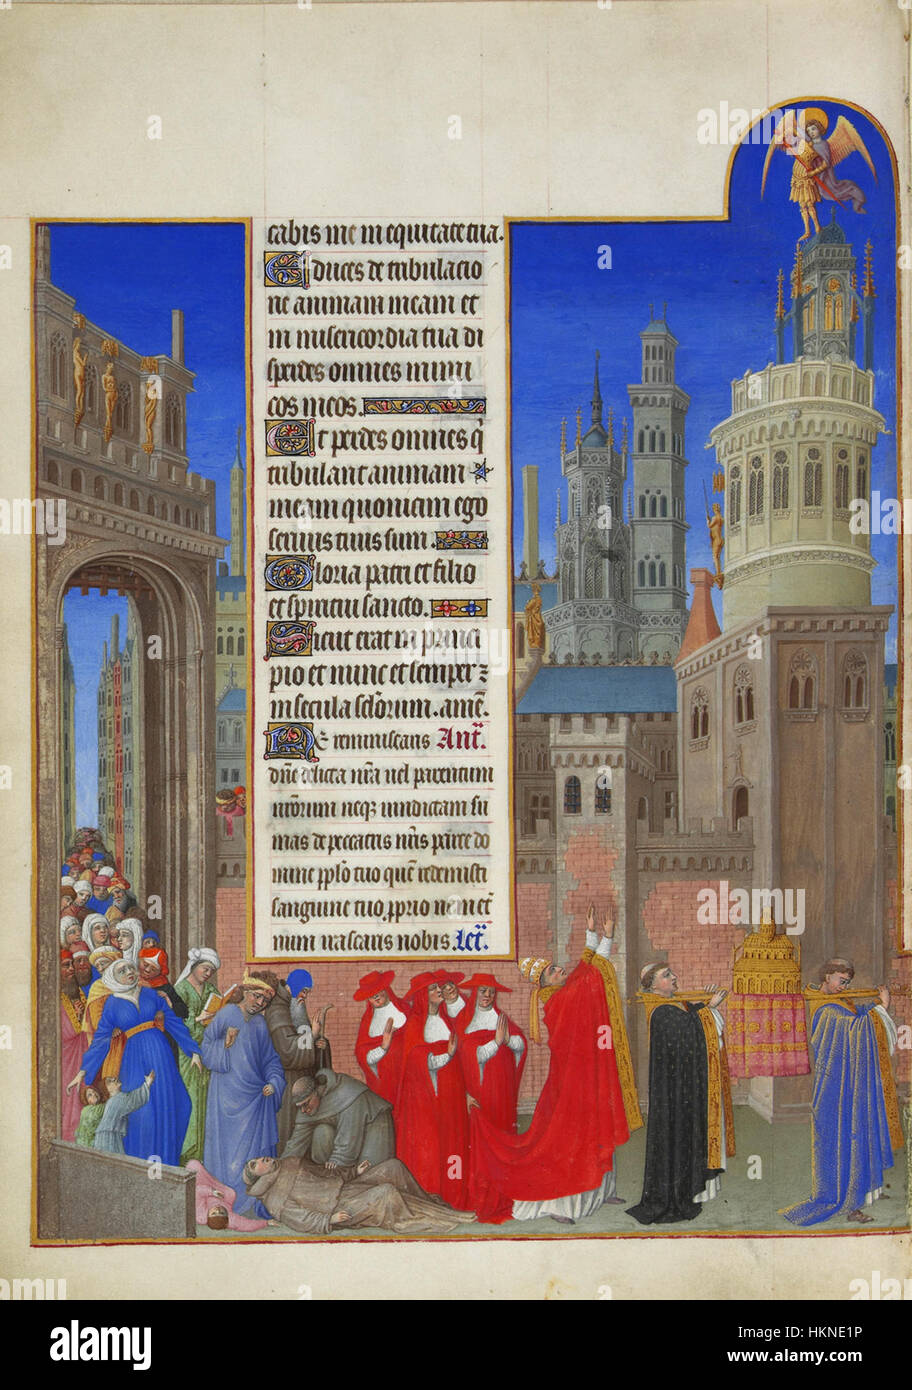 cabis me in equitate tua.
Educes de tribulatio
ne animam meam et
in misericordia tua di
sperdes omnes inimi
cos meos.
Et perdes omnes q̃
tribulant animam
meam quoniam ego
servus tuus sum.
Gloria patri et filio
et spiritui sancto.
Sicut erat in princi
pio et nunc et semper ⁊
in secula sc̃lorum. amẽ.
Ne reminiscaris Ant̃.
dñe delicta nr̃a vel parentum
nr̃orum neqꝫ vindictam su
mas de peccatis nr̃is parce do
mine pplo tuo quẽ redemisti
sanguine tuo p̃prio ne in et̃
num irascaris nobis. Let̃.
a alamy stock photo
HKNE1P
www.alamy.com